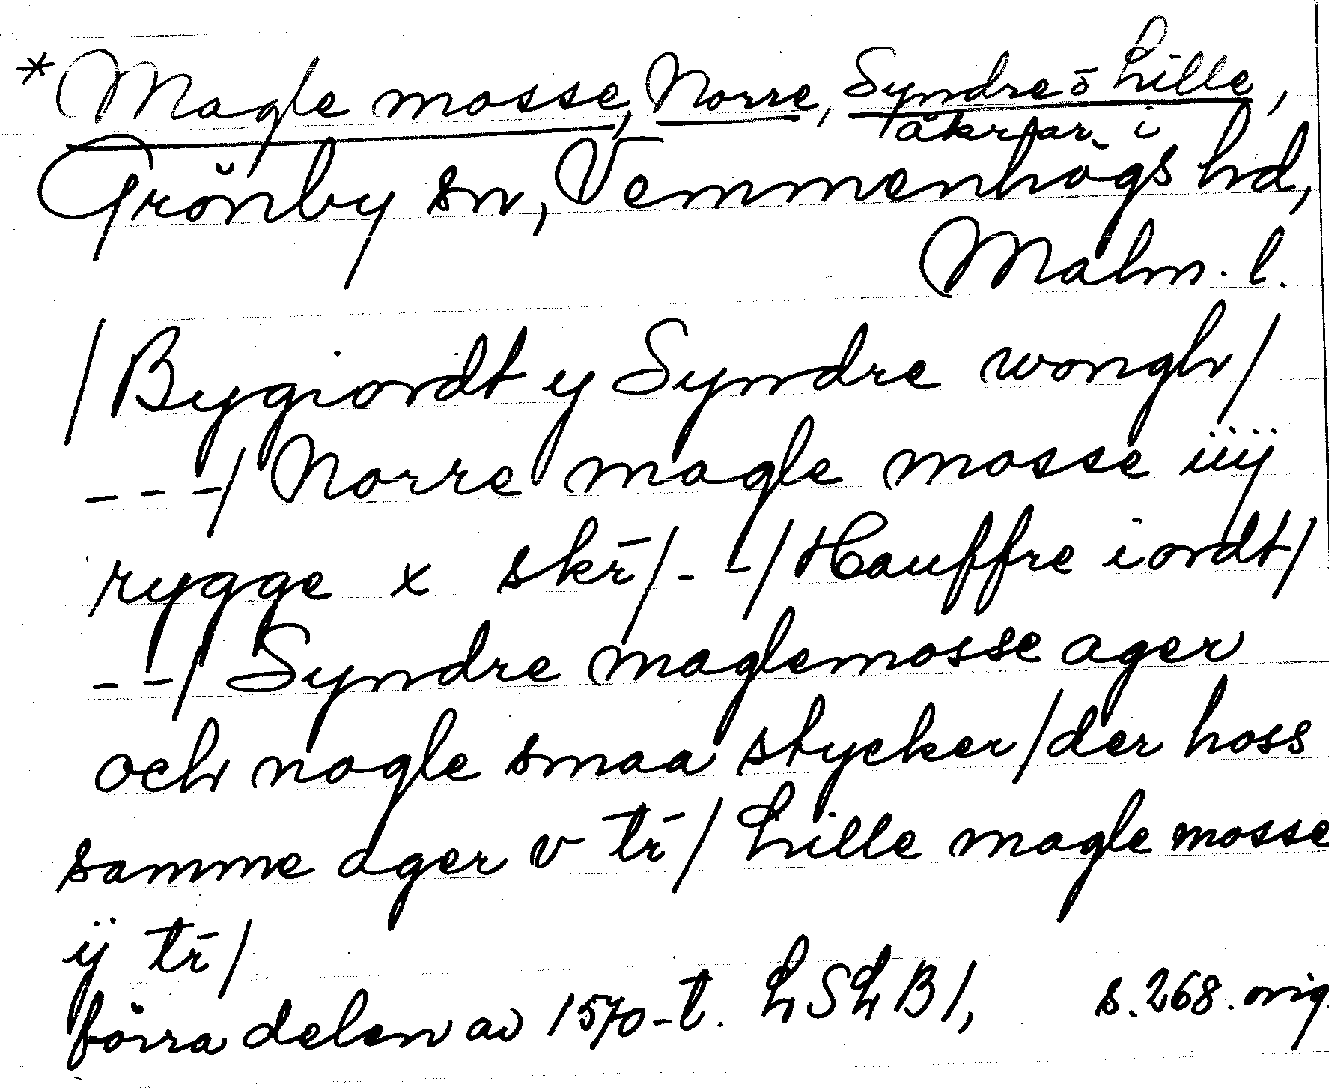 * Magle mosse, Norre, Syndre o̅ Lille,
åkrar i
Grönby sn, Vemmenhögs hd,
Malm. l.
/ Bygiordt y Syndre wongh /
- - - / Norre magle mosse iiij
rygge x skr̅ / - - / Hauffre iordt /
- - / Syndre maglemosse ager
och nogle smaa stycker / der hoss
samme ager v tr̅ / Lille magle mosse
ij tr̅ /
förra delen av 1570-t. LSLB 1, s. 268. orig.